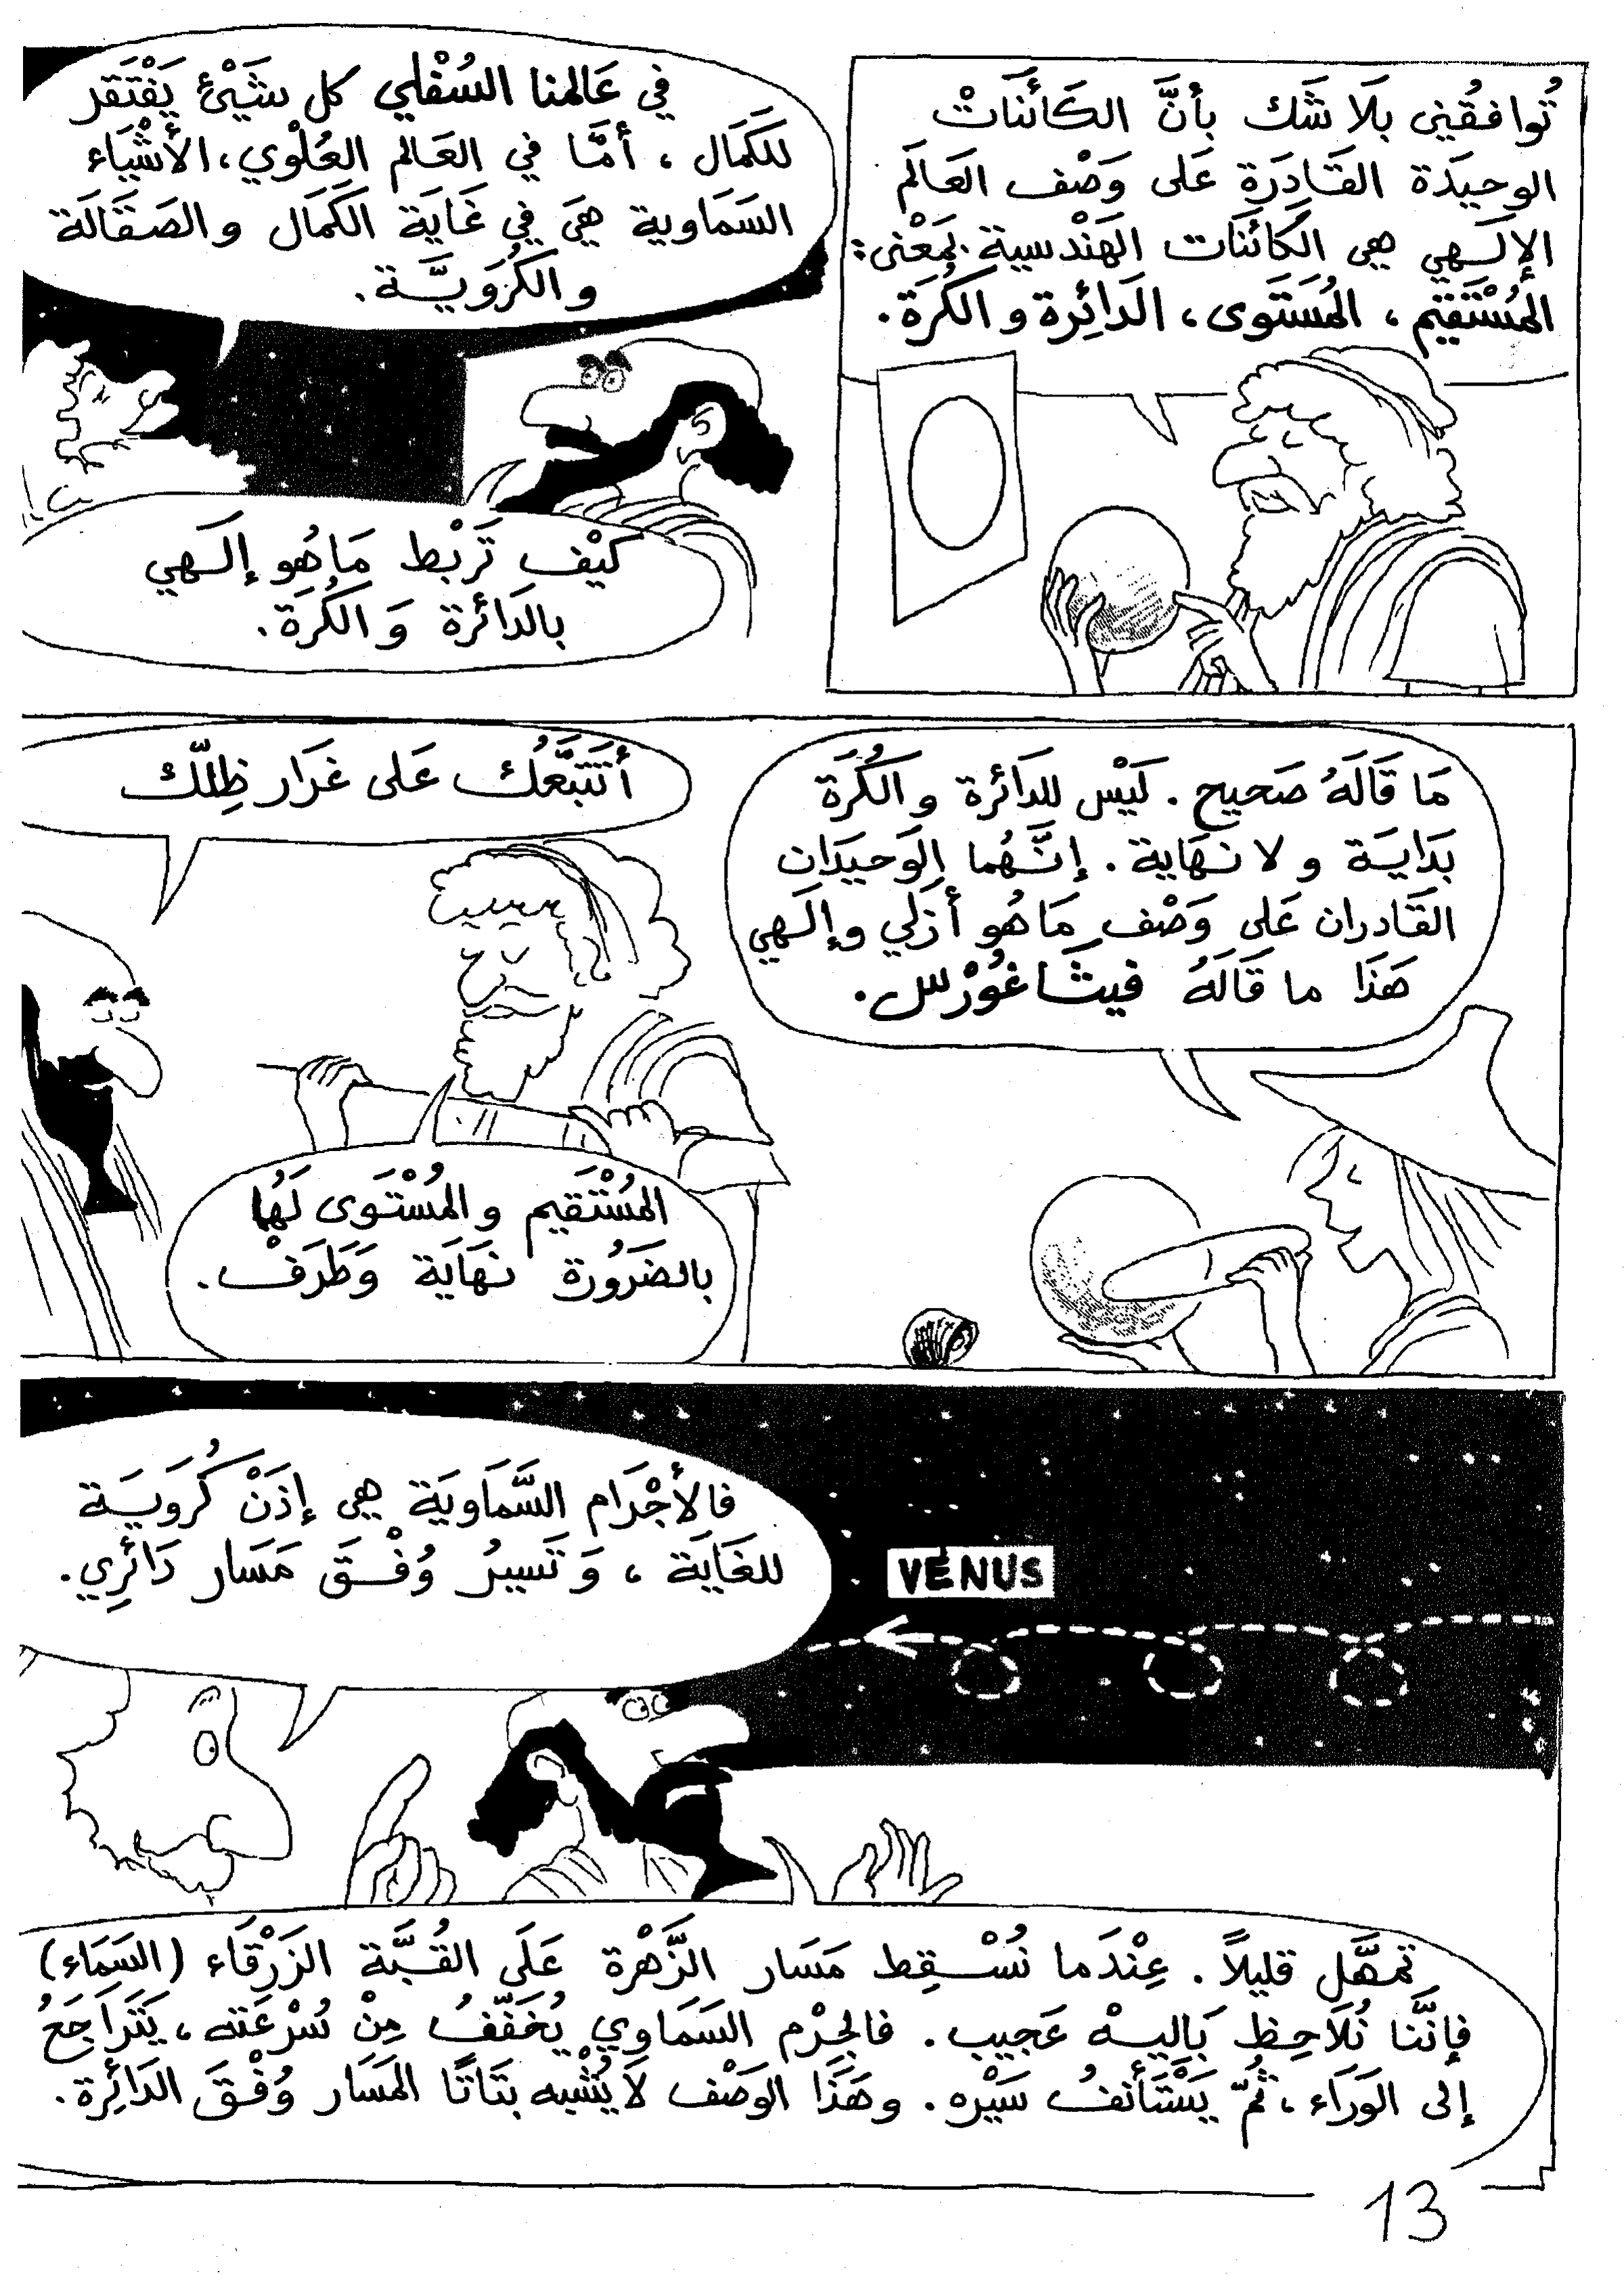 تُوافقُيني بلَا شَك بأنَّ الكَائنَاتْ
الوحيدَة القَادِرَة عَلى وَصْف العَالَم
الإلَهي هي الكَائنَات الهَنْدسية بمَعْنى:
المُسْتَقيم، المُسَتَوى، الدَائِرة والكُرَة.
في عَالمنا السُفْلي كل شَيْئ يَفْتَقر
للكَمَال، أمَّا في العَالم العُلْوي، الأشْيَاء
السَمَاوية هيَ في غَايَة الكَمَال والصَقَالَة
والكُرَويَّة.
كيْف تَرْبْط مَاهُو إلَهي
بالدَائرة وَالكُرَة.
مَا قَالَهُ صَحيح. لَيْس للدَائرة والكُرَة
بَدَايَة ولا نهَاية. إنَّهُما الوَحيدَان
القَادران عَلى وَصْف مَاهُو أزَلي وإلَهي
هَذَا ما قَالَهُ فيثَاغُورْس.
أتَتَبَّعُك عَلى غَرَار ظِلّك
المُسْتَقيم والمُسْتَوى لَهُما
بالضَرُورة نهَايَة وَطَرَفْ.
فالأجْرَام السَّمَاويَة هي إذَنْ كُرَويَة
للغَايَة، وَتَسيرُ وُفْقَ مَسَار دَائرِي.
VÉNUS
تمَهَّل قليلاً. عِنْدَما نُسْقِط مَسَار الزَّهْرة عَلَى القُبَّة الزَرْقَاء (السَمَاء)
فإنَّنا نُلَاحِظ بَاليه عَجيب. فالجرْم السَمَاوي يُخَفّفُ مِنْ سُرْعَته، يَتَرَاجَعُ
إلى الوَرَاء، ثُمّ يَسْتَأنفُ سَيْره. وهَذَا الوَصْف لَايُشْبه بتَاتًا المَسَار وُفْقَ الدَائِرة.
13